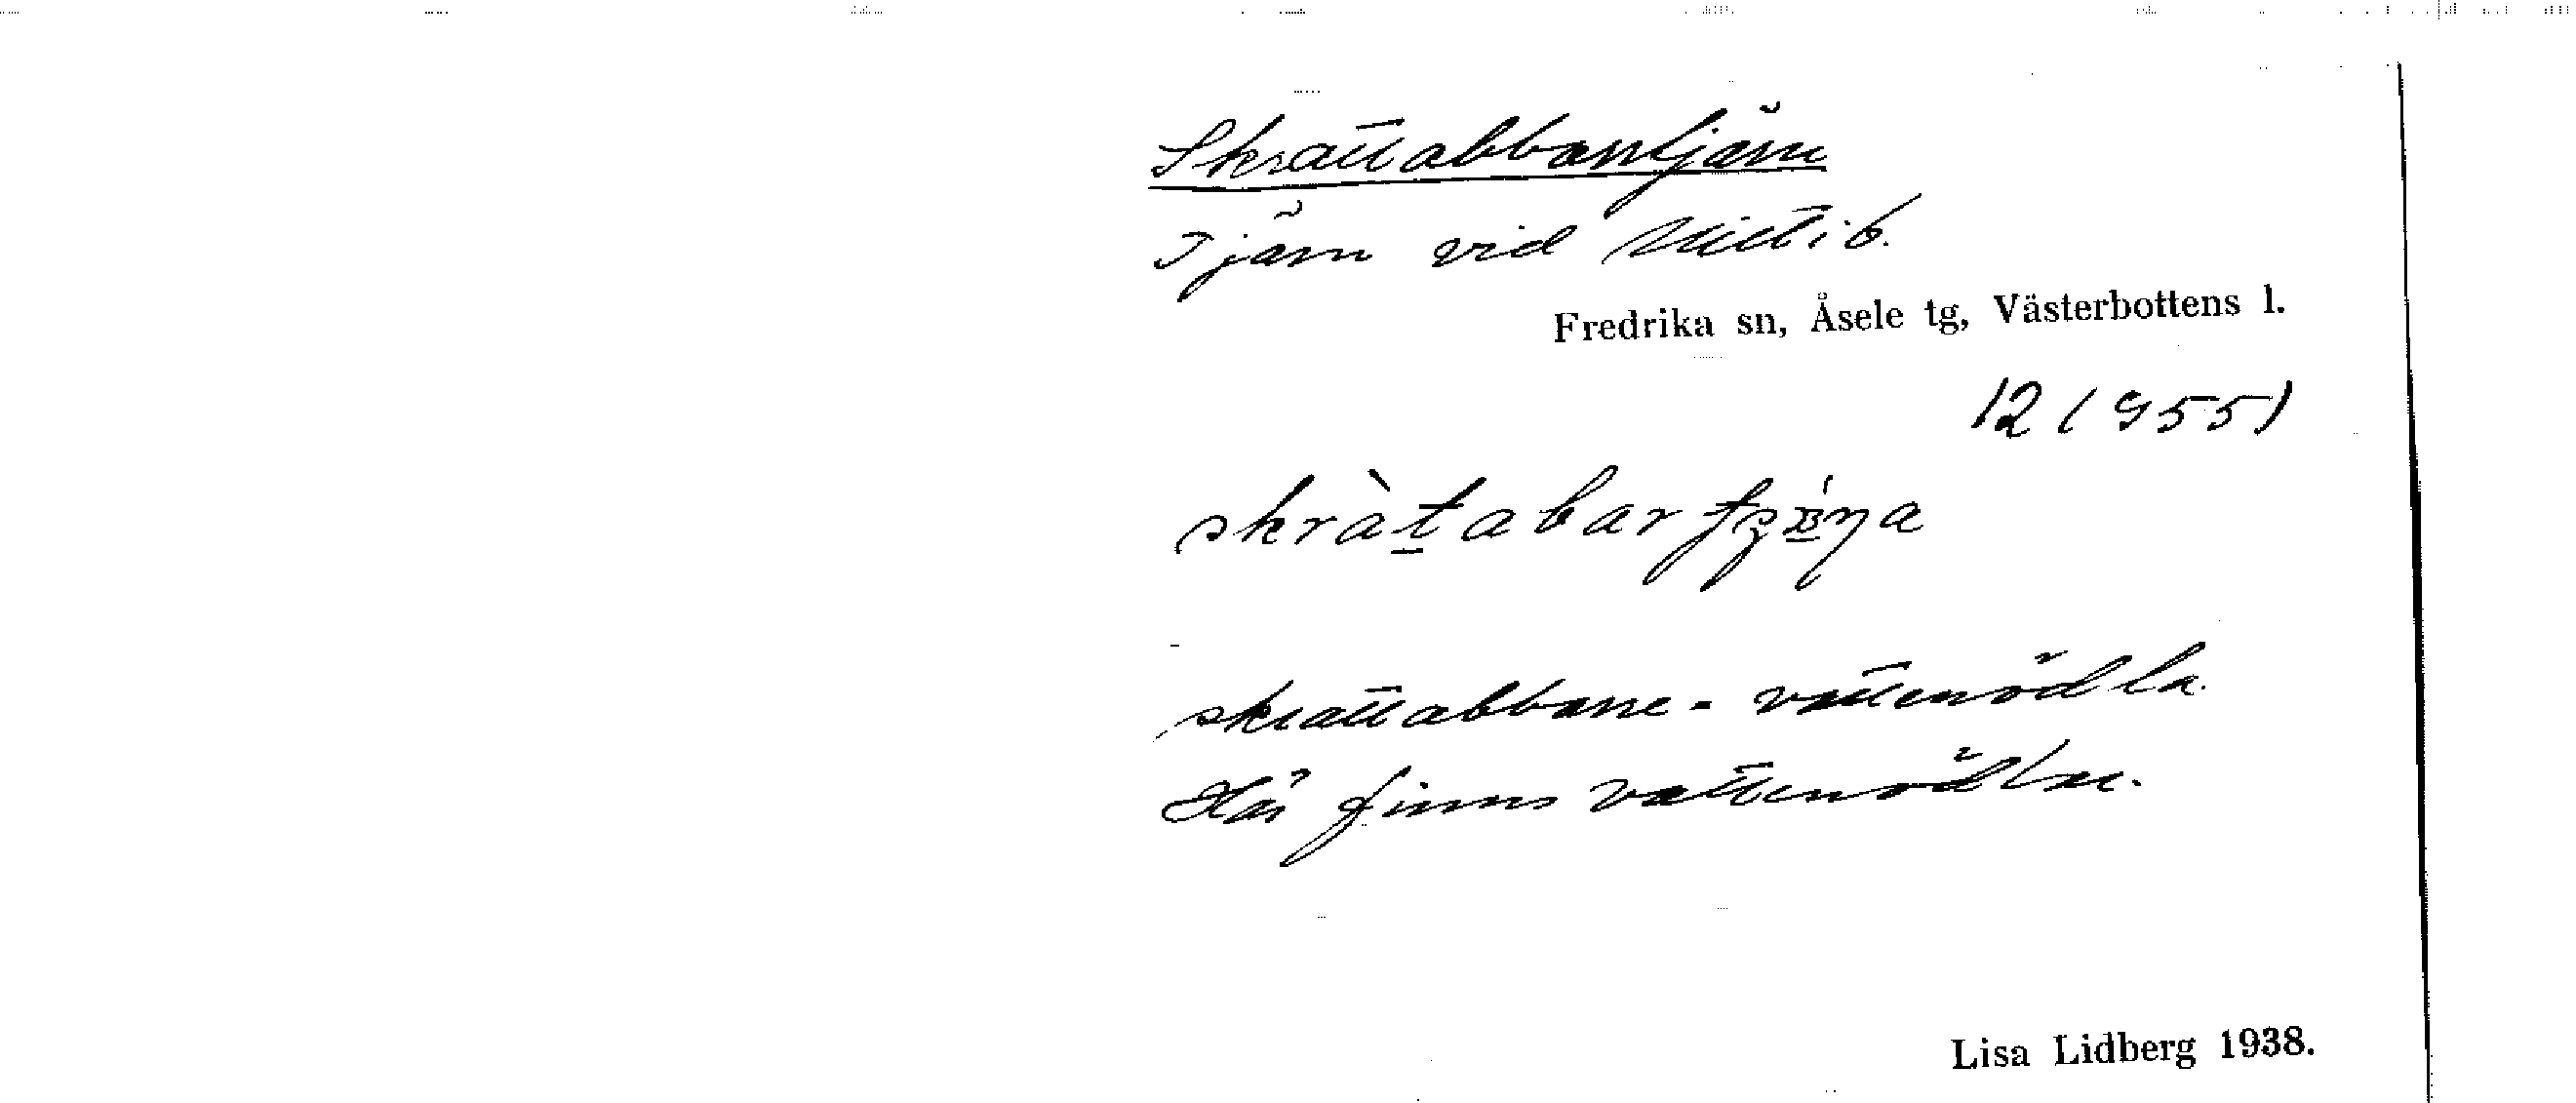 Skrattabbantjärn
Tjärn vid Uttåb.
Fredrika sn, Åsele tg, Västerbottens l.
12 (955)
skrattabbane = vattenödla.
Här finns vattenödlor.
Lisa Lidberg 1938.